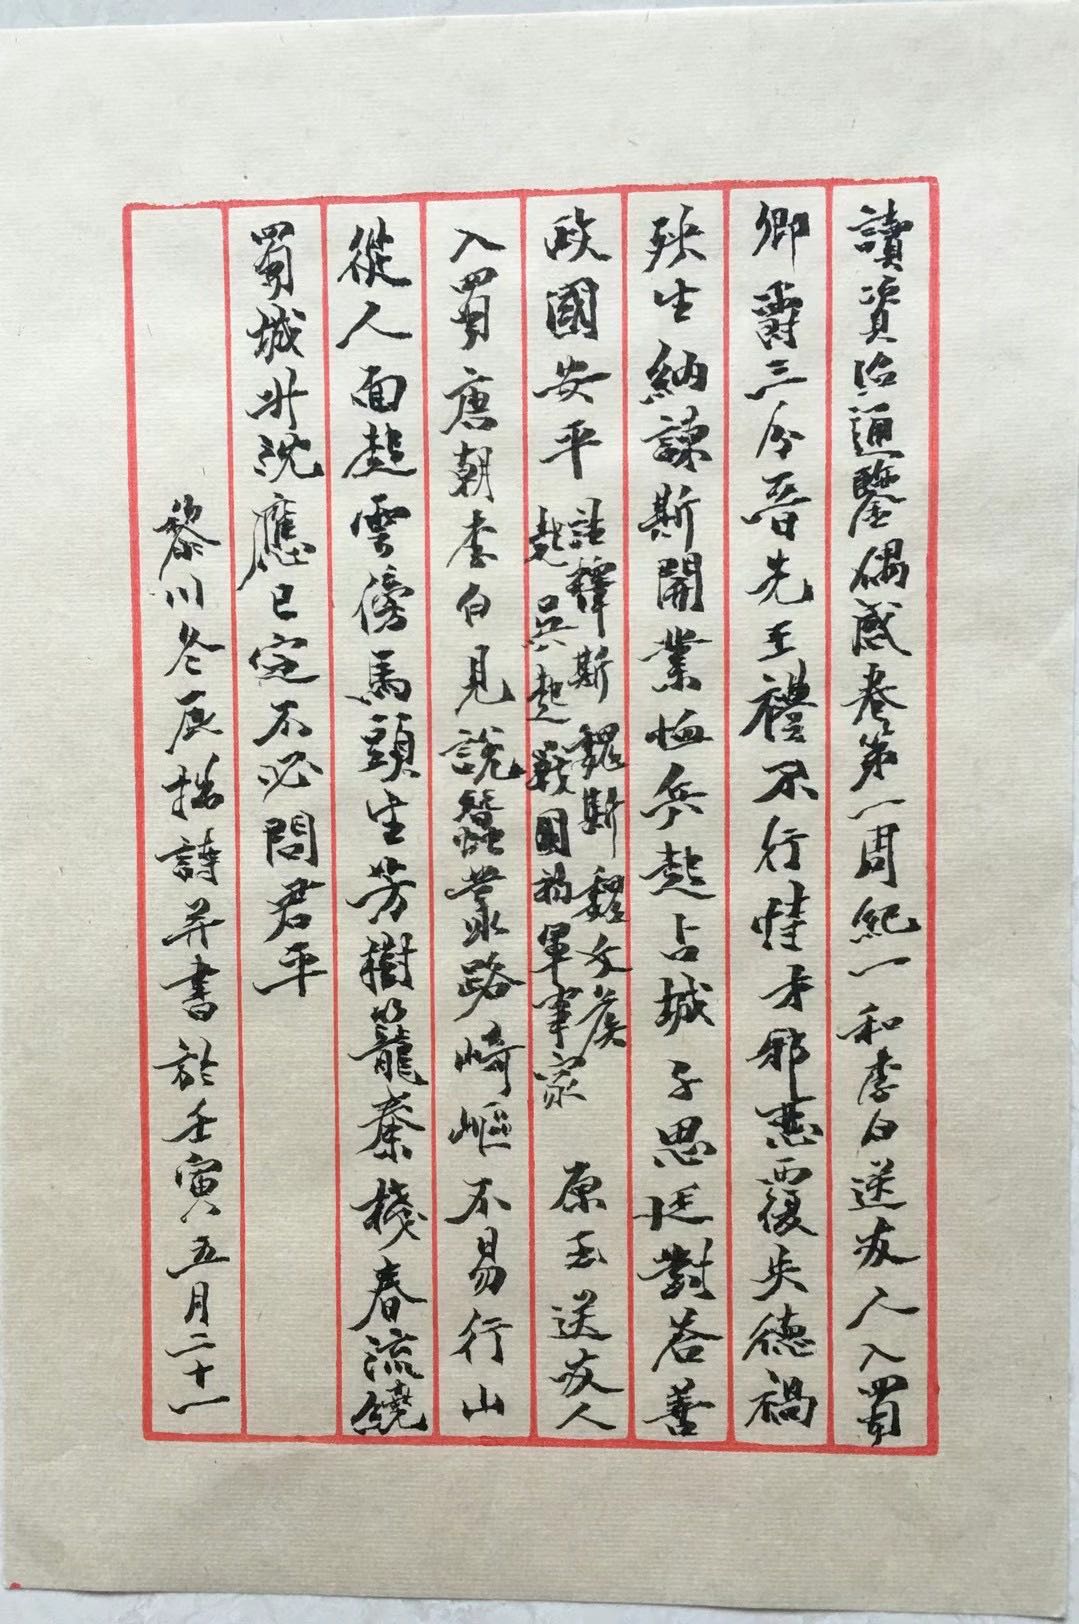 讀資治通鑒偶感卷第一周紀一和李白送友人入蜀
卿爵三分晉先王禮不行恃才邪惡覆失德禍
殃生納諫斯開業恤兵起占城子思廷對答善
政國安平
註釋斯魏斯魏文侯
起吳起戰國初軍事家
原玉送友人
入蜀唐朝李白見說蠶叢路崎嶇不易行山
從人面起雲傍馬頭生芳樹籠秦棧春流繞
蜀城升沈應已定不必問君平
黎川冬辰拙詩并書於壬寅五月二十一